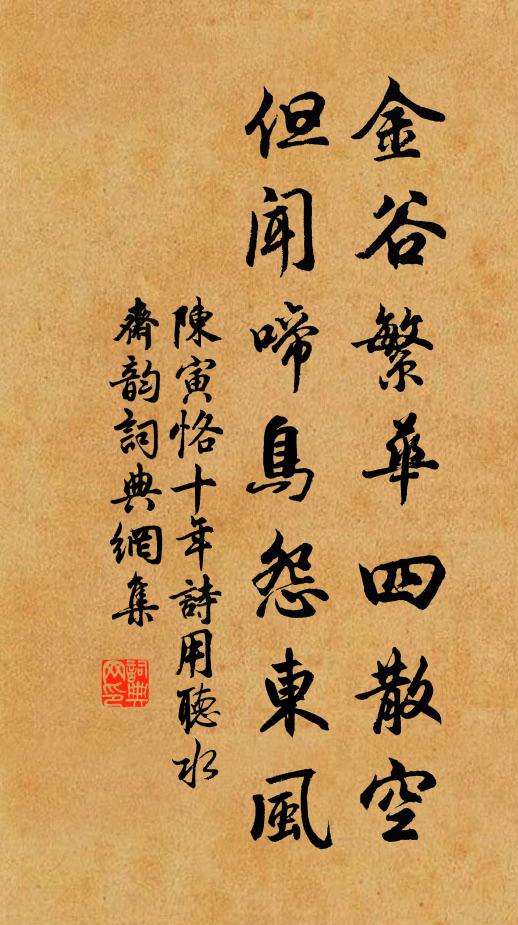 金谷繁華四散空
但聞啼鳥怨東風
陳寅恪十年詩用聽水
齋韵詞典網集
詞典
网印